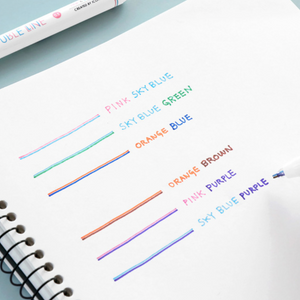 DOUBLE LINE
PINK SKY BLUE
SKY BLUE GREEN
ORANGE BLUE
ORANGE BROWN
PINK PURPLE
SKY BLUE PURPLE